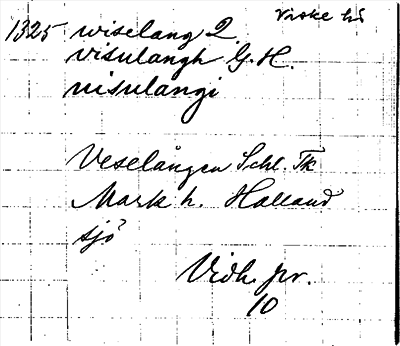 Viske hd
1325 wiselang 2
visulangh G. H.
uisulangi
Veselången Schl. Tk
Mark h. Halland
sjö
Vidh. pr.
10